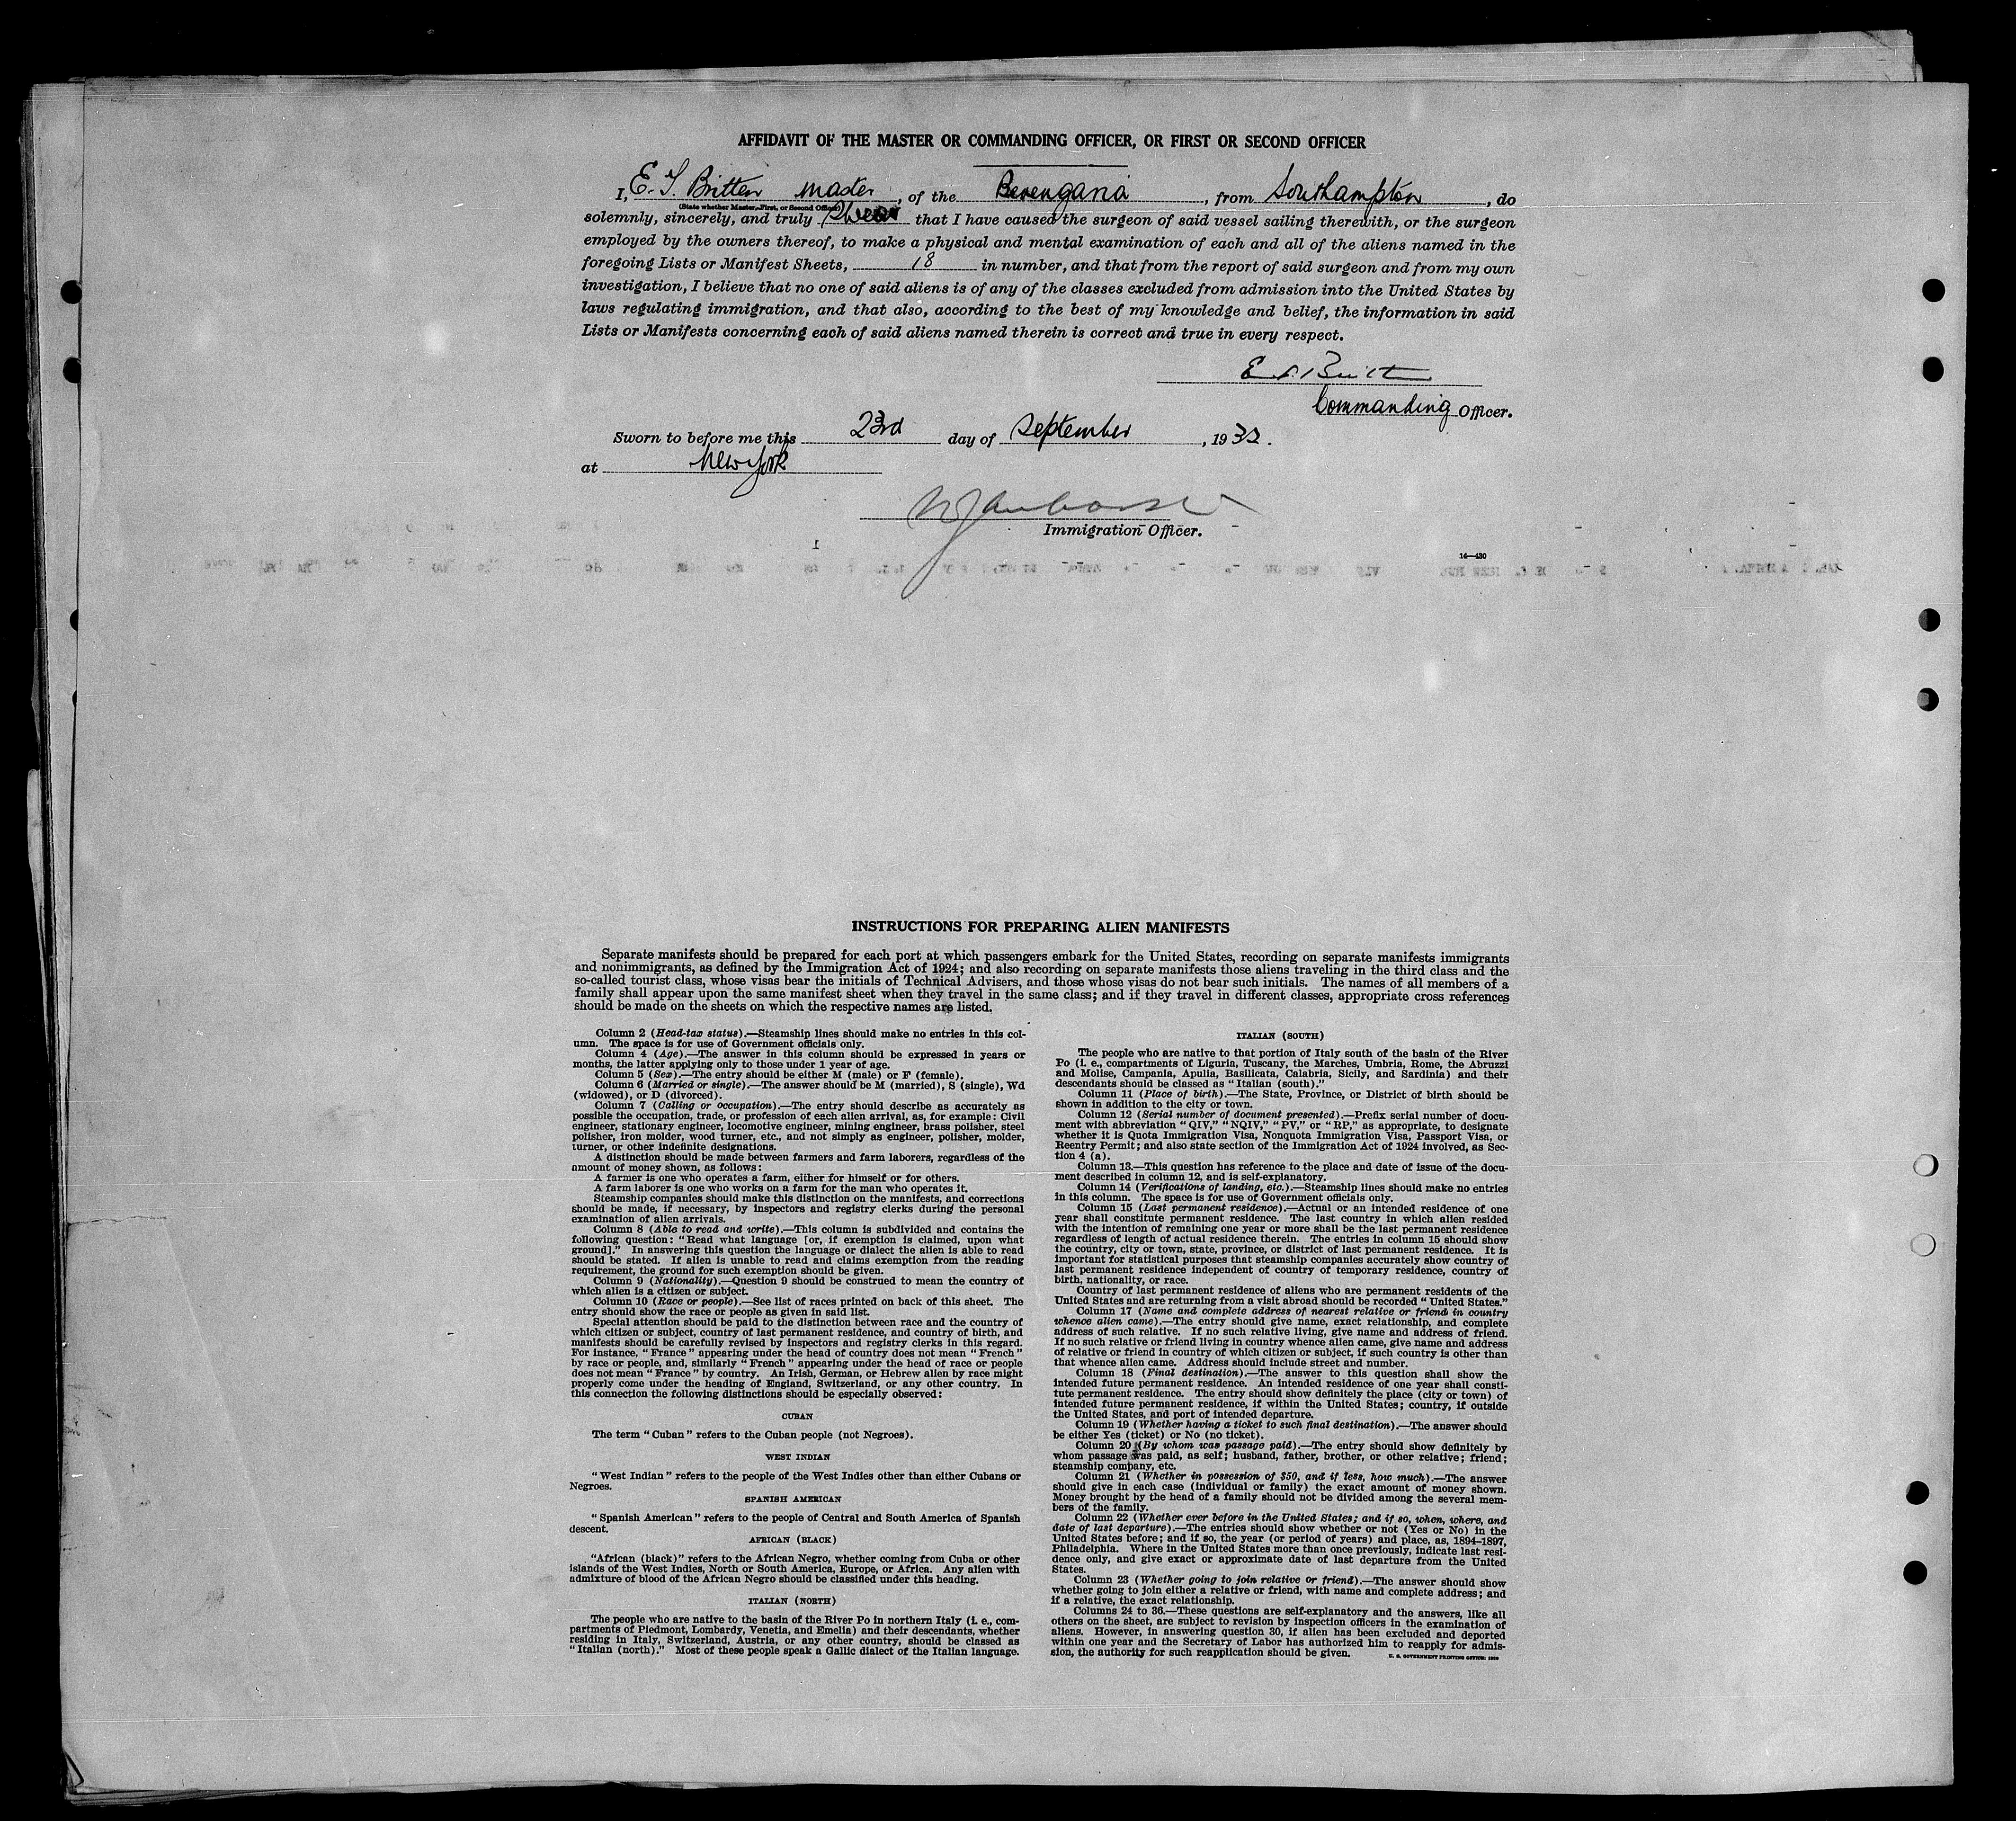 AFFIDAVIT OF THE MASTER OR COMMANDING OFFICER, OR FIRST OR SECOND OFFICER
I, E. T. Britten master, of the Berengaria, from Southampton, do
(State whether Master, First, or Second Officer)
solemnly, sincerely, and truly swear that I have caused the surgeon of said vessel sailing therewith, or the surgeon
employed by the owners thereof, to make a physical and mental examination of each and all of the aliens named in the
foregoing Lists or Manifest Sheets, 18 in number, and that from the report of said surgeon and from my own
investigation, I believe that no one of said aliens is of any of the classes excluded from admission into the United States by
laws regulating immigration, and that also, according to the best of my knowledge and belief, the information in said
Lists or Manifests concerning each of said aliens named therein is correct and true in every respect.
Commanding Officer.
Sworn to before me this 23rd day of September, 1932.
at New York
Immigration Officer.
14—430
INSTRUCTIONS FOR PREPARING ALIEN MANIFESTS
Separate manifests should be prepared for each port at which passengers embark for the United States, recording on separate manifests immigrants
and nonimmigrants, as defined by the Immigration Act of 1924; and also recording on separate manifests those aliens traveling in the third class and the
so-called tourist class, whose visas bear the initials of Technical Advisers, and those whose visas do not bear such initials. The names of all members of a
family shall appear upon the same manifest sheet when they travel in the same class; and if they travel in different classes, appropriate cross references
should be made on the sheets on which the respective names are listed.
Column 2 (Head-tax status).—Steamship lines should make no entries in this col-
umn. The space is for use of Government officials only.
Column 4 (Age).—The answer in this column should be expressed in years or
months, the latter applying only to those under 1 year of age.
Column 5 (Sex).—The entry should be either M (male) or F (female).
Column 6 (Married or single).—The answer should be M (married), S (single), Wd
(widowed), or D (divorced).
Column 7 (Calling or occupation).—The entry should describe as accurately as
possible the occupation, trade, or profession of each alien arrival, as, for example: Civil
engineer, stationary engineer, locomotive engineer, mining engineer, brass polisher, steel
polisher, iron molder, wood turner, etc., and not simply as engineer, polisher, molder,
turner, or other indefinite designations.
A distinction should be made between farmers and farm laborers, regardless of the
amount of money shown, as follows:
A farmer is one who operates a farm, either for himself or for others.
A farm laborer is one who works on a farm for the man who operates it.
Steamship companies should make this distinction on the manifests, and corrections
should be made, if necessary, by inspectors and registry clerks during the personal
examination of alien arrivals.
Column 8 (Able to read and write).—This column is subdivided and contains the
following question: "Read what language [or, if exemption is claimed, upon what
ground]." In answering this question the language or dialect the alien is able to read
should be stated. If alien is unable to read and claims exemption from the reading
requirement, the ground for such exemption should be given.
Column 9 (Nationality).—Question 9 should be construed to mean the country of
which alien is a citizen or subject.
Column 10 (Race or people).—See list of races printed on back of this sheet. The
entry should show the race or people as given in said list.
Special attention should be paid to the distinction between race and the country of
which citizen or subject, country of last permanent residence, and country of birth, and
manifests should be carefully revised by inspectors and registry clerks in this regard.
For instance, "France" appearing under the head of country does not mean "French"
by race or people, and, similarly "French" appearing under the head of race or people
does not mean "France" by country. An Irish, German, or Hebrew alien by race might
properly come under the heading of England, Switzerland, or any other country. In
this connection the following distinctions should be especially observed:
CUBAN
The term "Cuban" refers to the Cuban people (not Negroes).
WEST INDIAN
"West Indian" refers to the people of the West Indies other than either Cubans or
Negroes.
SPANISH AMERICAN
"Spanish American" refers to the people of Central and South America of Spanish
descent.
AFRICAN (BLACK)
"African (black)" refers to the African Negro, whether coming from Cuba or other
islands of the West Indies, North or South America, Europe, or Africa. Any alien with
admixture of blood of the African Negro should be classified under this heading.
ITALIAN (NORTH)
The people who are native to the basin of the River Po in northern Italy (i. e., com-
partments of Piedmont, Lombardy, Venetia, and Emelia) and their descendants, whether
residing in Italy, Switzerland, Austria, or any other country, should be classed as
"Italian (north)." Most of these people speak a Gallic dialect of the Italian language.
ITALIAN (SOUTH)
The people who are native to that portion of Italy south of the basin of the River
Po (i. e., compartments of Liguria, Tuscany, the Marches, Umbria, Rome, the Abruzzi
and Molise, Campania, Apulia, Basilicata, Calabria, Sicily, and Sardinia) and their
descendants should be classed as "Italian (south)."
Column 11 (Place of birth).—The State, Province, or District of birth should be
shown in addition to the city or town.
Column 12 (Serial number of document presented).—Prefix serial number of docu-
ment with abbreviation "QIV," "NQIV," "PV," or "RP," as appropriate, to designate
whether it is Quota Immigration Visa, Nonquota Immigration Visa, Passport Visa, or
Reentry Permit; and also state section of the Immigration Act of 1924 involved, as Sec-
tion 4 (a).
Column 13.—This question has reference to the place and date of issue of the docu-
ment described in column 12, and is self-explanatory.
Column 14 (Verifications of landing, etc.).—Steamship lines should make no entries
in this column. The space is for use of Government officials only.
Column 15 (Last permanent residence).—Actual or an intended residence of one
year shall constitute permanent residence. The last country in which alien resided
with the intention of remaining one year or more shall be the last permanent residence
regardless of length of actual residence therein. The entries in column 15 should show
the country, city or town, state, province, or district of last permanent residence. It is
important for statistical purposes that steamship companies accurately show country of
last permanent residence independent of country of temporary residence, country of
birth, nationality, or race.
Country of last permanent residence of aliens who are permanent residents of the
United States and are returning from a visit abroad should be recorded "United States."
Column 17 (Name and complete address of nearest relative or friend in country
whence alien came).—The entry should give name, exact relationship, and complete
address of such relative. If no such relative living, give name and address of friend.
If no such relative or friend living in country whence alien came, give name and address
of relative or friend in country of which citizen or subject, if such country is other than
that whence alien came. Address should include street and number.
Column 18 (Final destination).—The answer to this question shall show the
intended future permanent residence. An intended residence of one year shall consti-
tute permanent residence. The entry should show definitely the place (city or town) of
intended future permanent residence, if within the United States; country, if outside
the United States, and port of intended departure.
Column 19 (Whether having a ticket to such final destination).—The answer should
be either Yes (ticket) or No (no ticket).
Column 20 (By whom was passage paid).—The entry should show definitely by
whom passage was paid, as self; husband, father, brother, or other relative; friend;
steamship company, etc.
Column 21 (Whether in possession of $50, and if less, how much).—The answer
should give in each case (individual or family) the exact amount of money shown.
Money brought by the head of a family should not be divided among the several mem-
bers of the family.
Column 22 (Whether ever before in the United States; and if so, when, where, and
date of last departure).—The entries should show whether or not (Yes or No) in the
United States before; and if so, the year (or period of years) and place, as, 1894–1897,
Philadelphia. Where in the United States more than once previously, indicate last resi-
dence only, and give exact or approximate date of last departure from the United
States.
Column 23 (Whether going to join relative or friend).—The answer should show
whether going to join either a relative or friend, with name and complete address; and
if a relative, the exact relationship.
Columns 24 to 36.—These questions are self-explanatory and the answers, like all
others on the sheet, are subject to revision by inspection officers in the examination of
aliens. However, in answering question 30, if alien has been excluded and deported
within one year and the Secretary of Labor has authorized him to reapply for admis-
sion, the authority for such reapplication should be given.
U. S. GOVERNMENT PRINTING OFFICE: